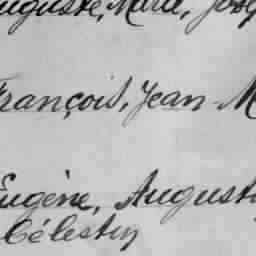 Auguste, Marie, Jos
François, Jean M
Eugène, Auguste
Célestin